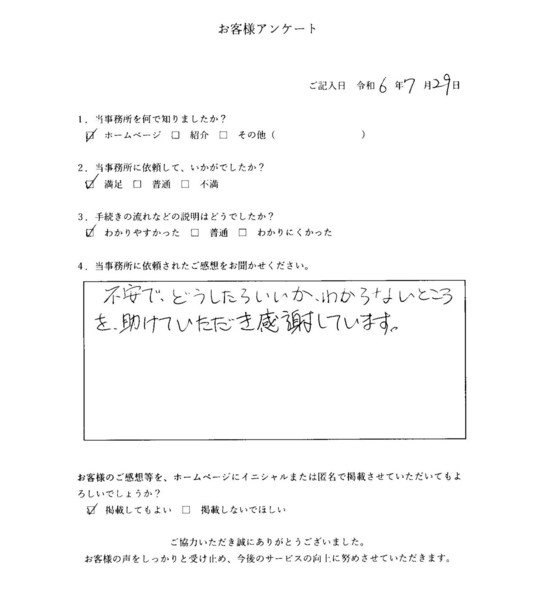 お客様アンケート
ご記入日 令和 6 年 7 月 29 日
1．当事務所を何で知りましたか？
☑ ホームページ □ 紹介 □ その他（ ）
2．当事務所に依頼して、いかがでしたか？
☑ 満足 □ 普通 □ 不満
3．手続きの流れなどの説明はどうでしたか？
☑ わかりやすかった □ 普通 □ わかりにくかった
4．当事務所に依頼されたご感想をお聞かせください。
不安で、どうしたらいいか、わからないところ
を、助けていただき感謝しています。
お客様のご感想等を、ホームページにイニシャルまたは匿名で掲載させていただいてもよ
ろしいでしょうか？
☑ 掲載してもよい □ 掲載しないでほしい
ご協力いただき誠にありがとうございました。
お客様の声をしっかりと受け止め、今後のサービスの向上に努めさせていただきます。